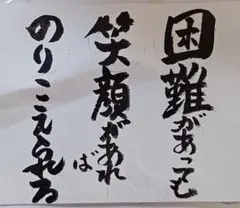 困難があっても
笑顔があれば
のりこえられる